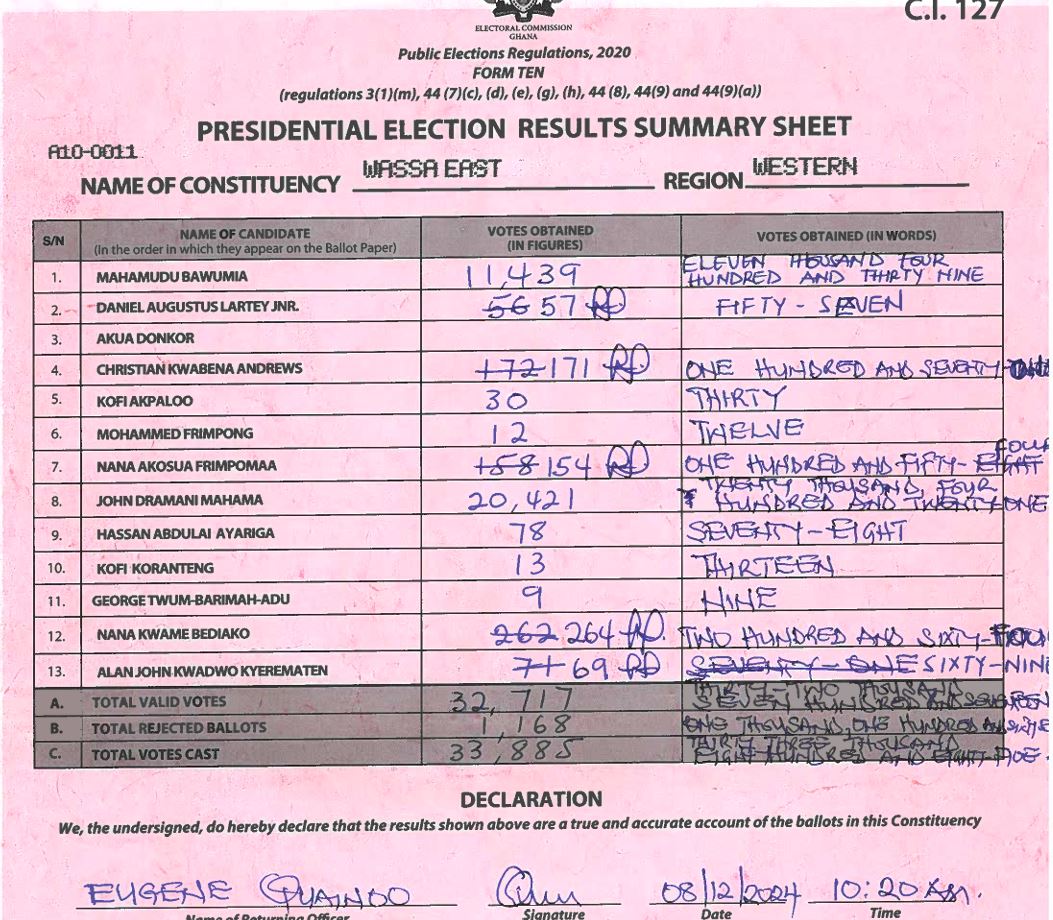 C.I. 127
ELECTORAL COMMISSION
GHANA
Public Elections Regulations, 2020
FORM TEN
(regulations 3(1)(m), 44 (7)(c), (d), (e), (g), (h), 44 (8), 44(9) and 44(9)(a))
PRESIDENTIAL ELECTION RESULTS SUMMARY SHEET
A10-0011
NAME OF CONSTITUENCY WASSA EAST REGION WESTERN
S/N NAME OF CANDIDATE (In the order in which they appear on the Ballot Paper) VOTES OBTAINED (IN FIGURES) VOTES OBTAINED (IN WORDS)
1. MAHAMUDU BAWUMIA 11,439 ELEVEN THOUSAND FOUR HUNDRED AND THIRTY NINE
2. DANIEL AUGUSTUS LARTEY JNR. 56 57 FIFTY - SEVEN
3. AKUA DONKOR
4. CHRISTIAN KWABENA ANDREWS 172 171 ONE HUNDRED AND SEVENTY-
5. KOFI AKPALOO 30 THIRTY
6. MOHAMMED FRIMPONG 12 TWELVE
7. NANA AKOSUA FRIMPOMAA 158 154 ONE HUNDRED AND FIFTY-EIGHT FOUR
8. JOHN DRAMANI MAHAMA 20,421 TWENTY THOUSAND, FOUR HUNDRED AND TWENTY-ONE
9. HASSAN ABDULAI AYARIGA 78 SEVENTY-EIGHT
10. KOFI KORANTENG 13 THIRTEEN
11. GEORGE TWUM-BARIMAH-ADU 9 NINE
12. NANA KWAME BEDIAKO 262 264 TWO HUNDRED AND SIXTY-FOUR
13. ALAN JOHN KWADWO KYEREMATEN 71 69 SEVENTY-ONE SIXTY-NINE
A. TOTAL VALID VOTES 32,717 THIRTY-TWO THOUSAND SEVEN HUNDRED AND SEVENTEEN
B. TOTAL REJECTED BALLOTS 1,168 ONE THOUSAND, ONE HUNDRED AND
C. TOTAL VOTES CAST 33,885 THIRTY THREE THOUSAND EIGHT HUNDRED AND EIGHTY-FIVE.
DECLARATION
We, the undersigned, do hereby declare that the results shown above are a true and accurate account of the ballots in this Constituency
EUGENE QUAINOO 08/12/2024 10:20 AM.
Name of Returning Officer Signature Date Time